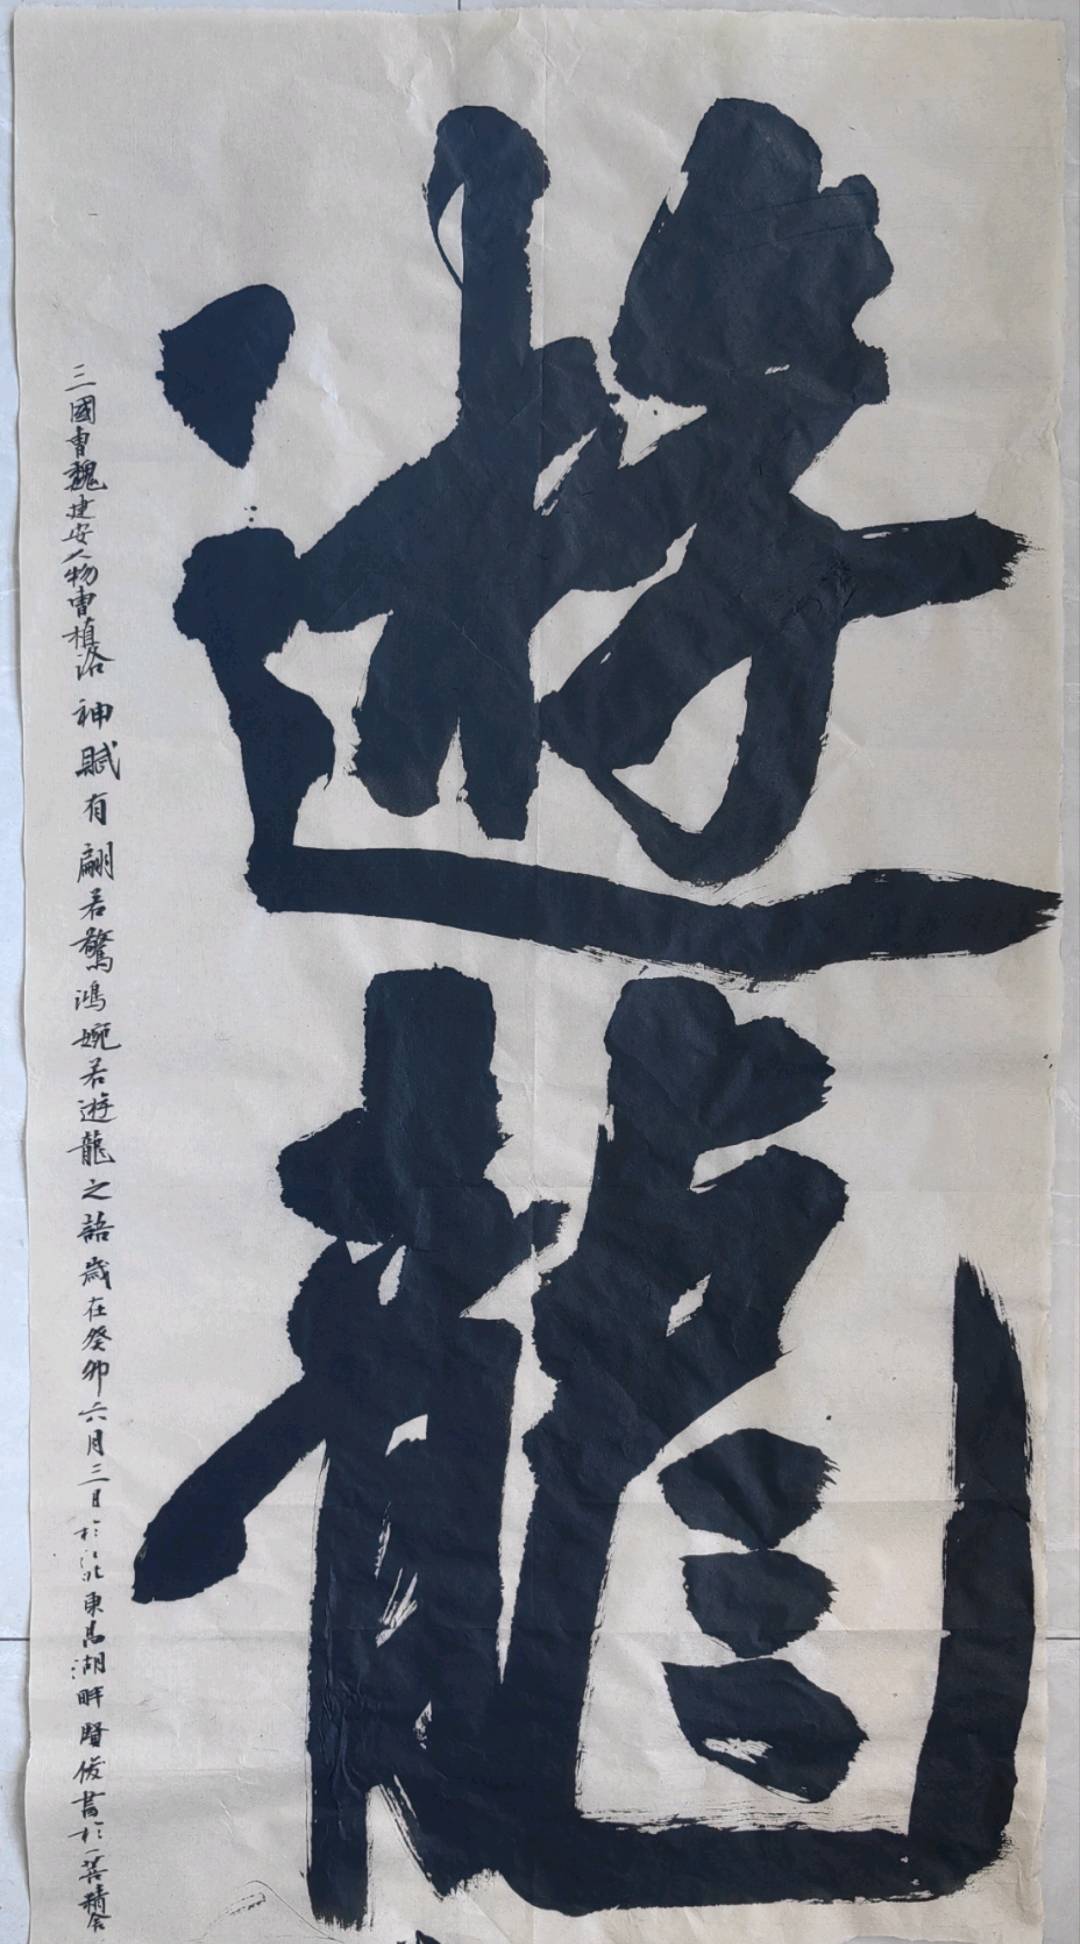 遊龍
三國曹魏建安人物曹植洛神賦有翩若驚鴻婉若遊龍之語歲在癸卯六月三日於江北東馬湖畔賢俊書於一菩精舍